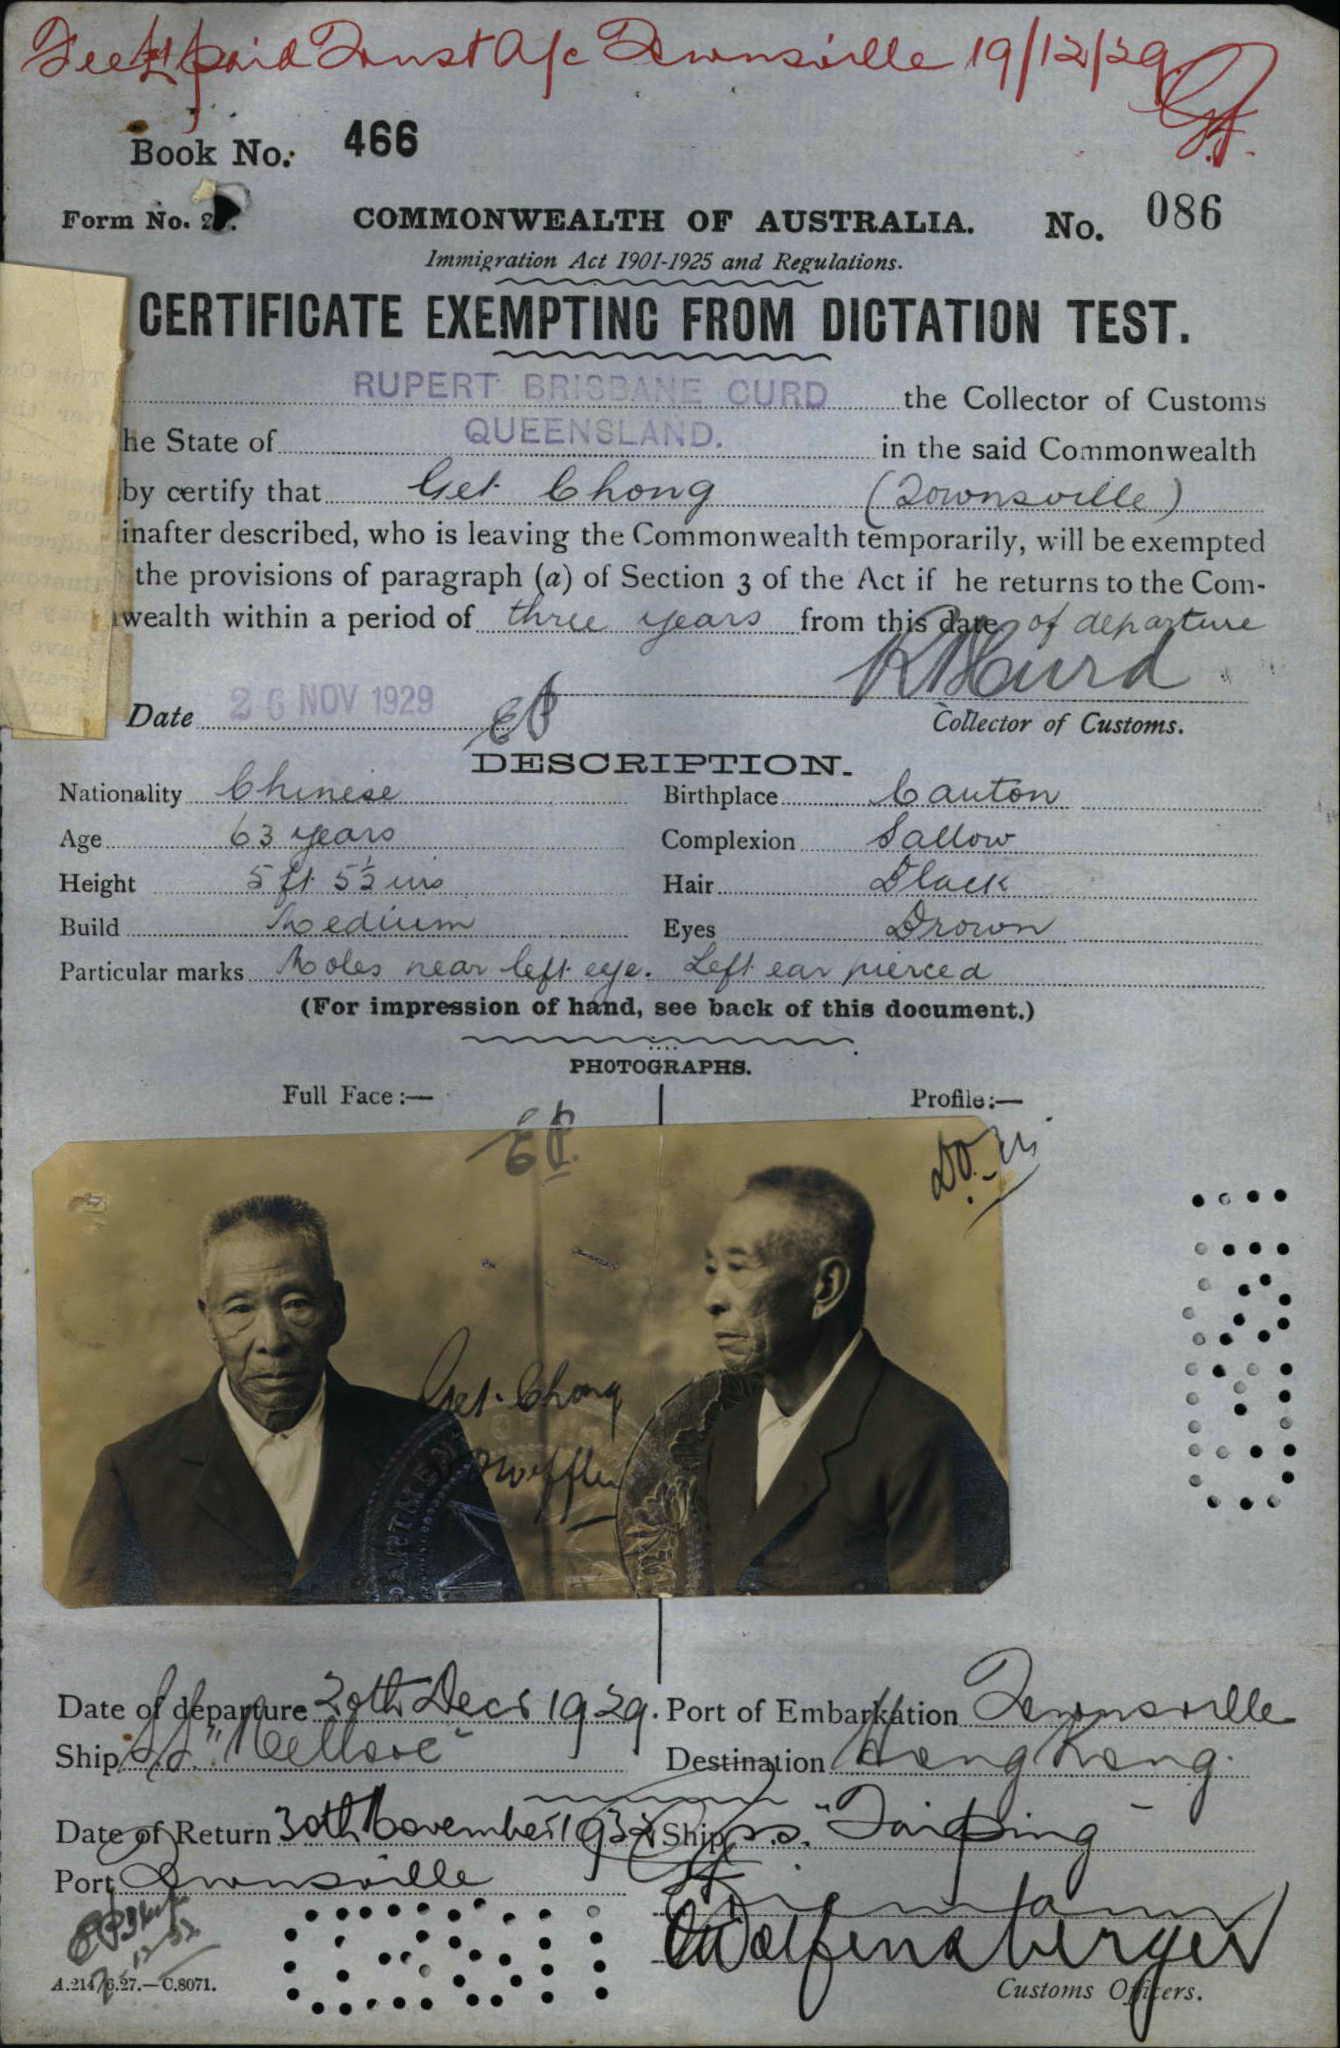 Fee £1 paid Trust A/c Townsville 19/12/29
Book No. 466
Form No. 2
COMMONWEALTH OF AUSTRALIA. No. 086
Immigration Act 1901-1925 and Regulations.
CERTIFICATE EXEMPTING FROM DICTATION TEST.
RUPERT BRISBANE CURD the Collector of Customs
he State of QUEENSLAND. in the said Commonwealth
by certify that Get Chong (Townsville)
inafter described, who is leaving the Commonwealth temporarily, will be exempted
the provisions of paragraph (a) of Section 3 of the Act if he returns to the Com-
wealth within a period of three years from this date of departure
R B Curd
Date 26 NOV 1929
Collector of Customs.
DESCRIPTION.
Nationality Chinese Birthplace Canton
Age 63 years Complexion Sallow
Height 5 ft 5½ ins Hair Black
Build Medium Eyes Brown
Particular marks Moles near left eye. Left ear pierced
(For impression of hand, see back of this document.)
PHOTOGRAPHS.
Full Face:— Profile:—
Get Chong
Date of departure 20th Decr 1929. Port of Embarkation Townsville
Ship S.S. "Nellore" Destination Hong Kong.
Date of Return 30th November 1932 Ship s.s. "Taiping"
Port Townsville
Customs Officers.
A.214/6.27.—C.8071.